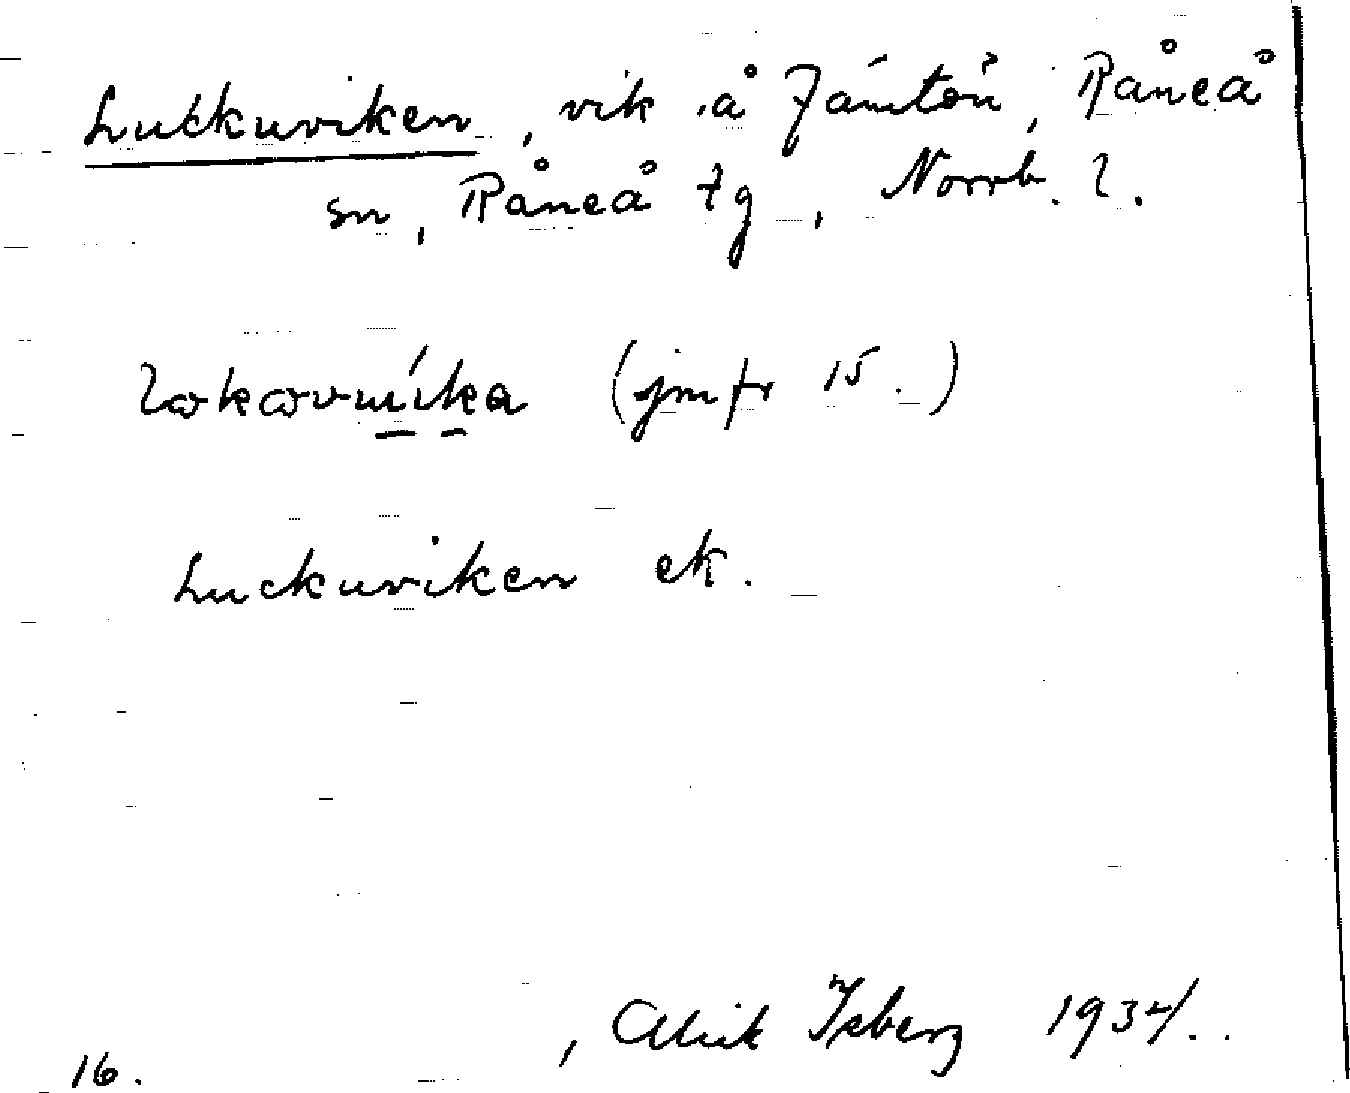 Luckuviken, vik å Jämtön, Råneå
sn, Råneå tg, Norrb. l.
(jmfr 15.)
Luckuviken ek.
Alrik Isberg 1934.
16.